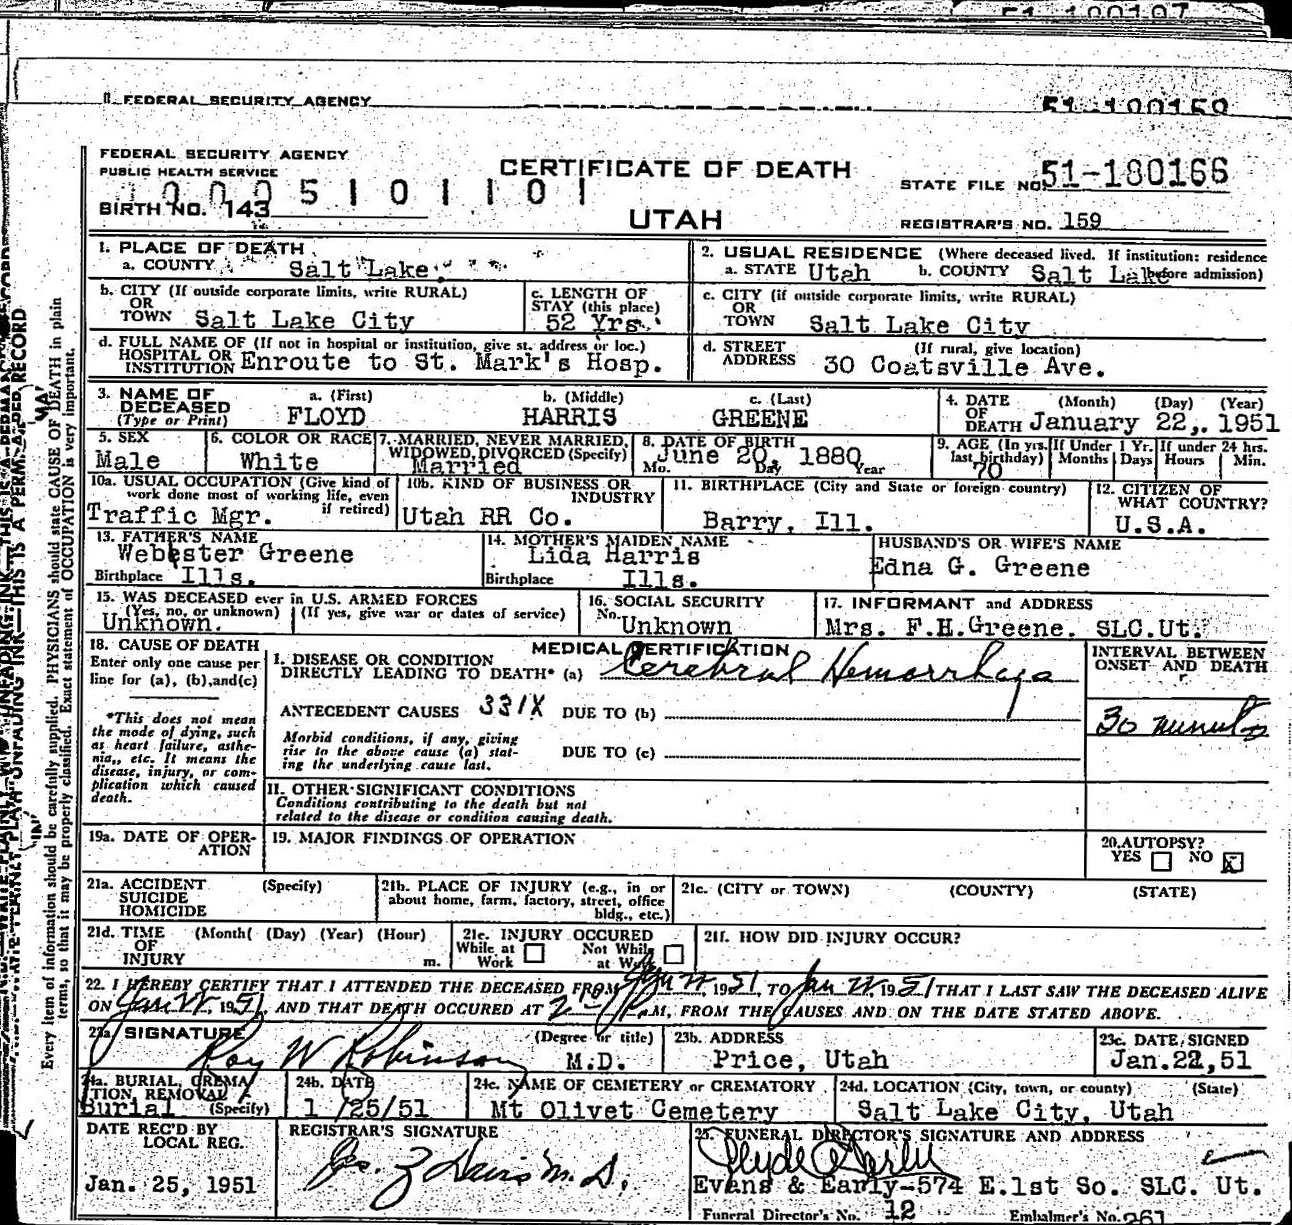 FEDERAL SECURITY AGENCY
51-180159
FEDERAL SECURITY AGENCY
PUBLIC HEALTH SERVICE
CERTIFICATE OF DEATH
STATE FILE NO. 51-180166
0005101101
BIRTH NO. 143
UTAH
REGISTRAR'S NO. 159
1. PLACE OF DEATH
a. COUNTY Salt Lake
2. USUAL RESIDENCE (Where deceased lived. If institution: residence before admission)
a. STATE Utah b. COUNTY Salt Lake
b. CITY (If outside corporate limits, write RURAL)
OR
TOWN Salt Lake City
c. LENGTH OF
STAY (this place)
52 Yrs.
c. CITY (if outside corporate limits, write RURAL)
OR
TOWN Salt Lake City
d. FULL NAME OF (If not in hospital or institution, give st. address or loc.)
HOSPITAL OR
INSTITUTION Enroute to St. Mark's Hosp.
d. STREET (If rural, give location)
ADDRESS 30 Coatsville Ave.
3. NAME OF
DECEASED
(Type or Print)
a. (First) b. (Middle) c. (Last)
FLOYD HARRIS GREENE
4. DATE (Month) (Day) (Year)
OF
DEATH January 22,. 1951
5. SEX
Male
6. COLOR OR RACE
White
7. MARRIED, NEVER MARRIED,
WIDOWED, DIVORCED (Specify)
Married
8. DATE OF BIRTH
June 20, 1880
Mo. Day Year
9. AGE (In yrs. last birthday)
70
If Under 1 Yr.
Months Days
If under 24 hrs.
Hours Min.
10a. USUAL OCCUPATION (Give kind of
work done most of working life, even
if retired)
Traffic Mgr.
10b. KIND OF BUSINESS OR
INDUSTRY
Utah RR Co.
11. BIRTHPLACE (City and State or foreign country)
Barry, Ill.
12. CITIZEN OF
WHAT COUNTRY?
U.S.A.
13. FATHER'S NAME
Webster Greene
Birthplace Ills.
14. MOTHER'S MAIDEN NAME
Lida Harris
Birthplace Ills.
HUSBAND'S OR WIFE'S NAME
Edna G. Greene
15. WAS DECEASED ever in U.S. ARMED FORCES
(Yes, no, or unknown) (If yes, give war or dates of service)
Unknown.
16. SOCIAL SECURITY
No. Unknown
17. INFORMANT and ADDRESS
Mrs. F.H.Greene. SLC.Ut.
18. CAUSE OF DEATH
Enter only one cause per
line for (a), (b),and(c)
*This does not mean
the mode of dying, such
as heart failure, asthe-
nia,, etc. It means the
disease, injury, or com-
plication which caused
death.
MEDICAL CERTIFICATION
I. DISEASE OR CONDITION
DIRECTLY LEADING TO DEATH* (a) Cerebral Hemorrhage
ANTECEDENT CAUSES 331X DUE TO (b)
Morbid conditions, if any, giving
rise to the above cause (a) stat-
ing the underlying cause last.
DUE TO (c)
INTERVAL BETWEEN
ONSET AND DEATH
30 minutes
II. OTHER SIGNIFICANT CONDITIONS
Conditions contributing to the death but not
related to the disease or condition causing death.
19a. DATE OF OPER-
ATION
19. MAJOR FINDINGS OF OPERATION
20. AUTOPSY?
YES NO X
21a. ACCIDENT (Specify)
SUICIDE
HOMICIDE
21b. PLACE OF INJURY (e.g., in or
about home, farm, factory, street, office
bldg., etc.)
21c. (CITY or TOWN) (COUNTY) (STATE)
21d. TIME (Month( (Day) (Year) (Hour)
OF
INJURY m.
21e. INJURY OCCURED
While at Work Not While at Work
21f. HOW DID INJURY OCCUR?
22. I HEREBY CERTIFY THAT I ATTENDED THE DECEASED FROM Jan 22, 1951, TO Jan 22, 1951 THAT I LAST SAW THE DECEASED ALIVE
ON Jan 22, 1951, AND THAT DEATH OCCURED AT P.M, FROM THE CAUSES AND ON THE DATE STATED ABOVE.
23a. SIGNATURE (Degree or title)
Roy W Robinson M.D.
23b. ADDRESS
Price, Utah
23c. DATE SIGNED
Jan.22,51
24a. BURIAL, CREMA
TION, REMOVAL
Burial (Specify)
24b. DATE
1/25/51
24c. NAME OF CEMETERY or CREMATORY
Mt Olivet Cemetery
24d. LOCATION (City, town, or county) (State)
Salt Lake City, Utah
DATE REC'D BY
LOCAL REG.
Jan. 25, 1951
REGISTRAR'S SIGNATURE
25. FUNERAL DIRECTOR'S SIGNATURE AND ADDRESS
Evans & Early-574 E.1st So. SLC. Ut.
Funeral Director's No. 12 Embalmer's No. 261
Every item of information should be carefully supplied. PHYSICIANS should state CAUSE OF DEATH in plain
terms, so that it may be properly classified. Exact statement of OCCUPATION is very important.